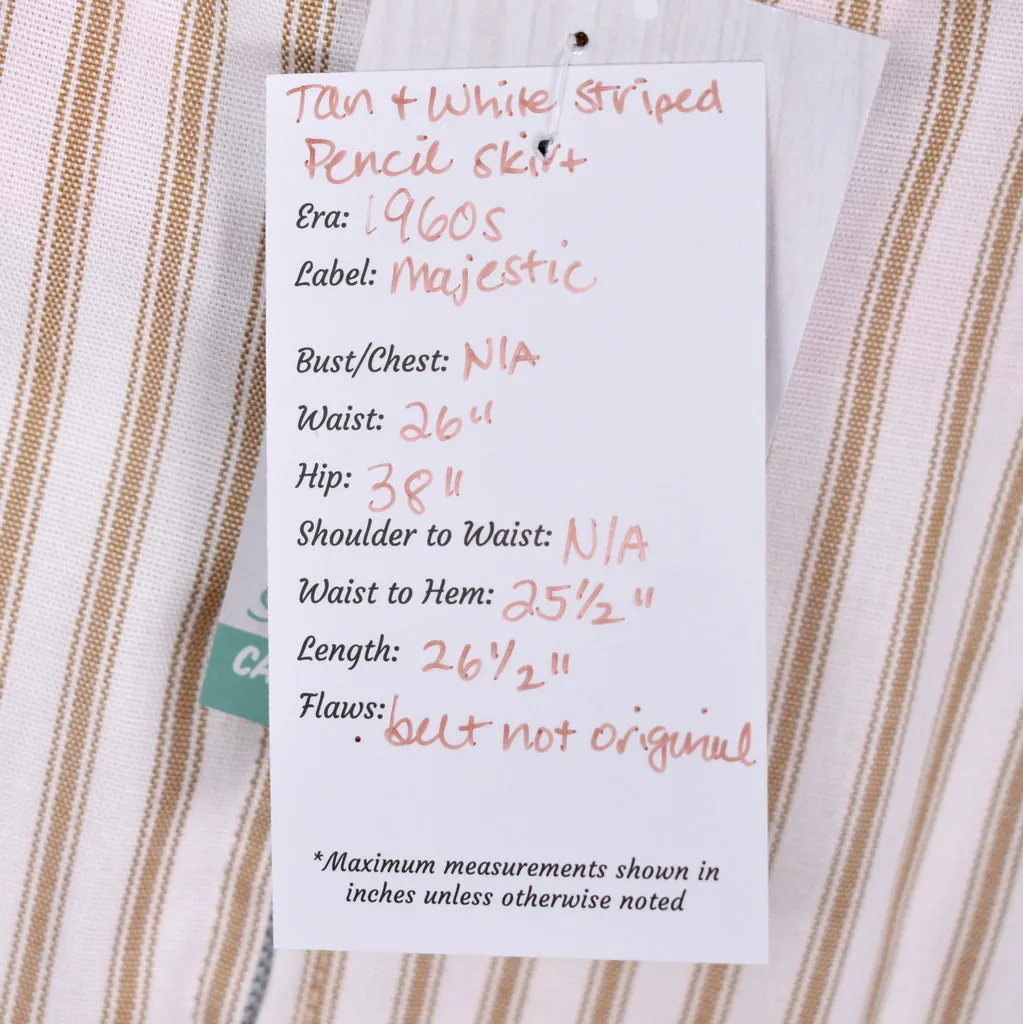 Tan + White Striped
Pencil Skirt
Era: 1960s
Label: Majestic
Bust/Chest: N/A
Waist: 26"
Hip: 38"
Shoulder to Waist: N/A
Waist to Hem: 25 1/2"
Length: 26 1/2"
Flaws: belt not original
*Maximum measurements shown in
inches unless otherwise noted